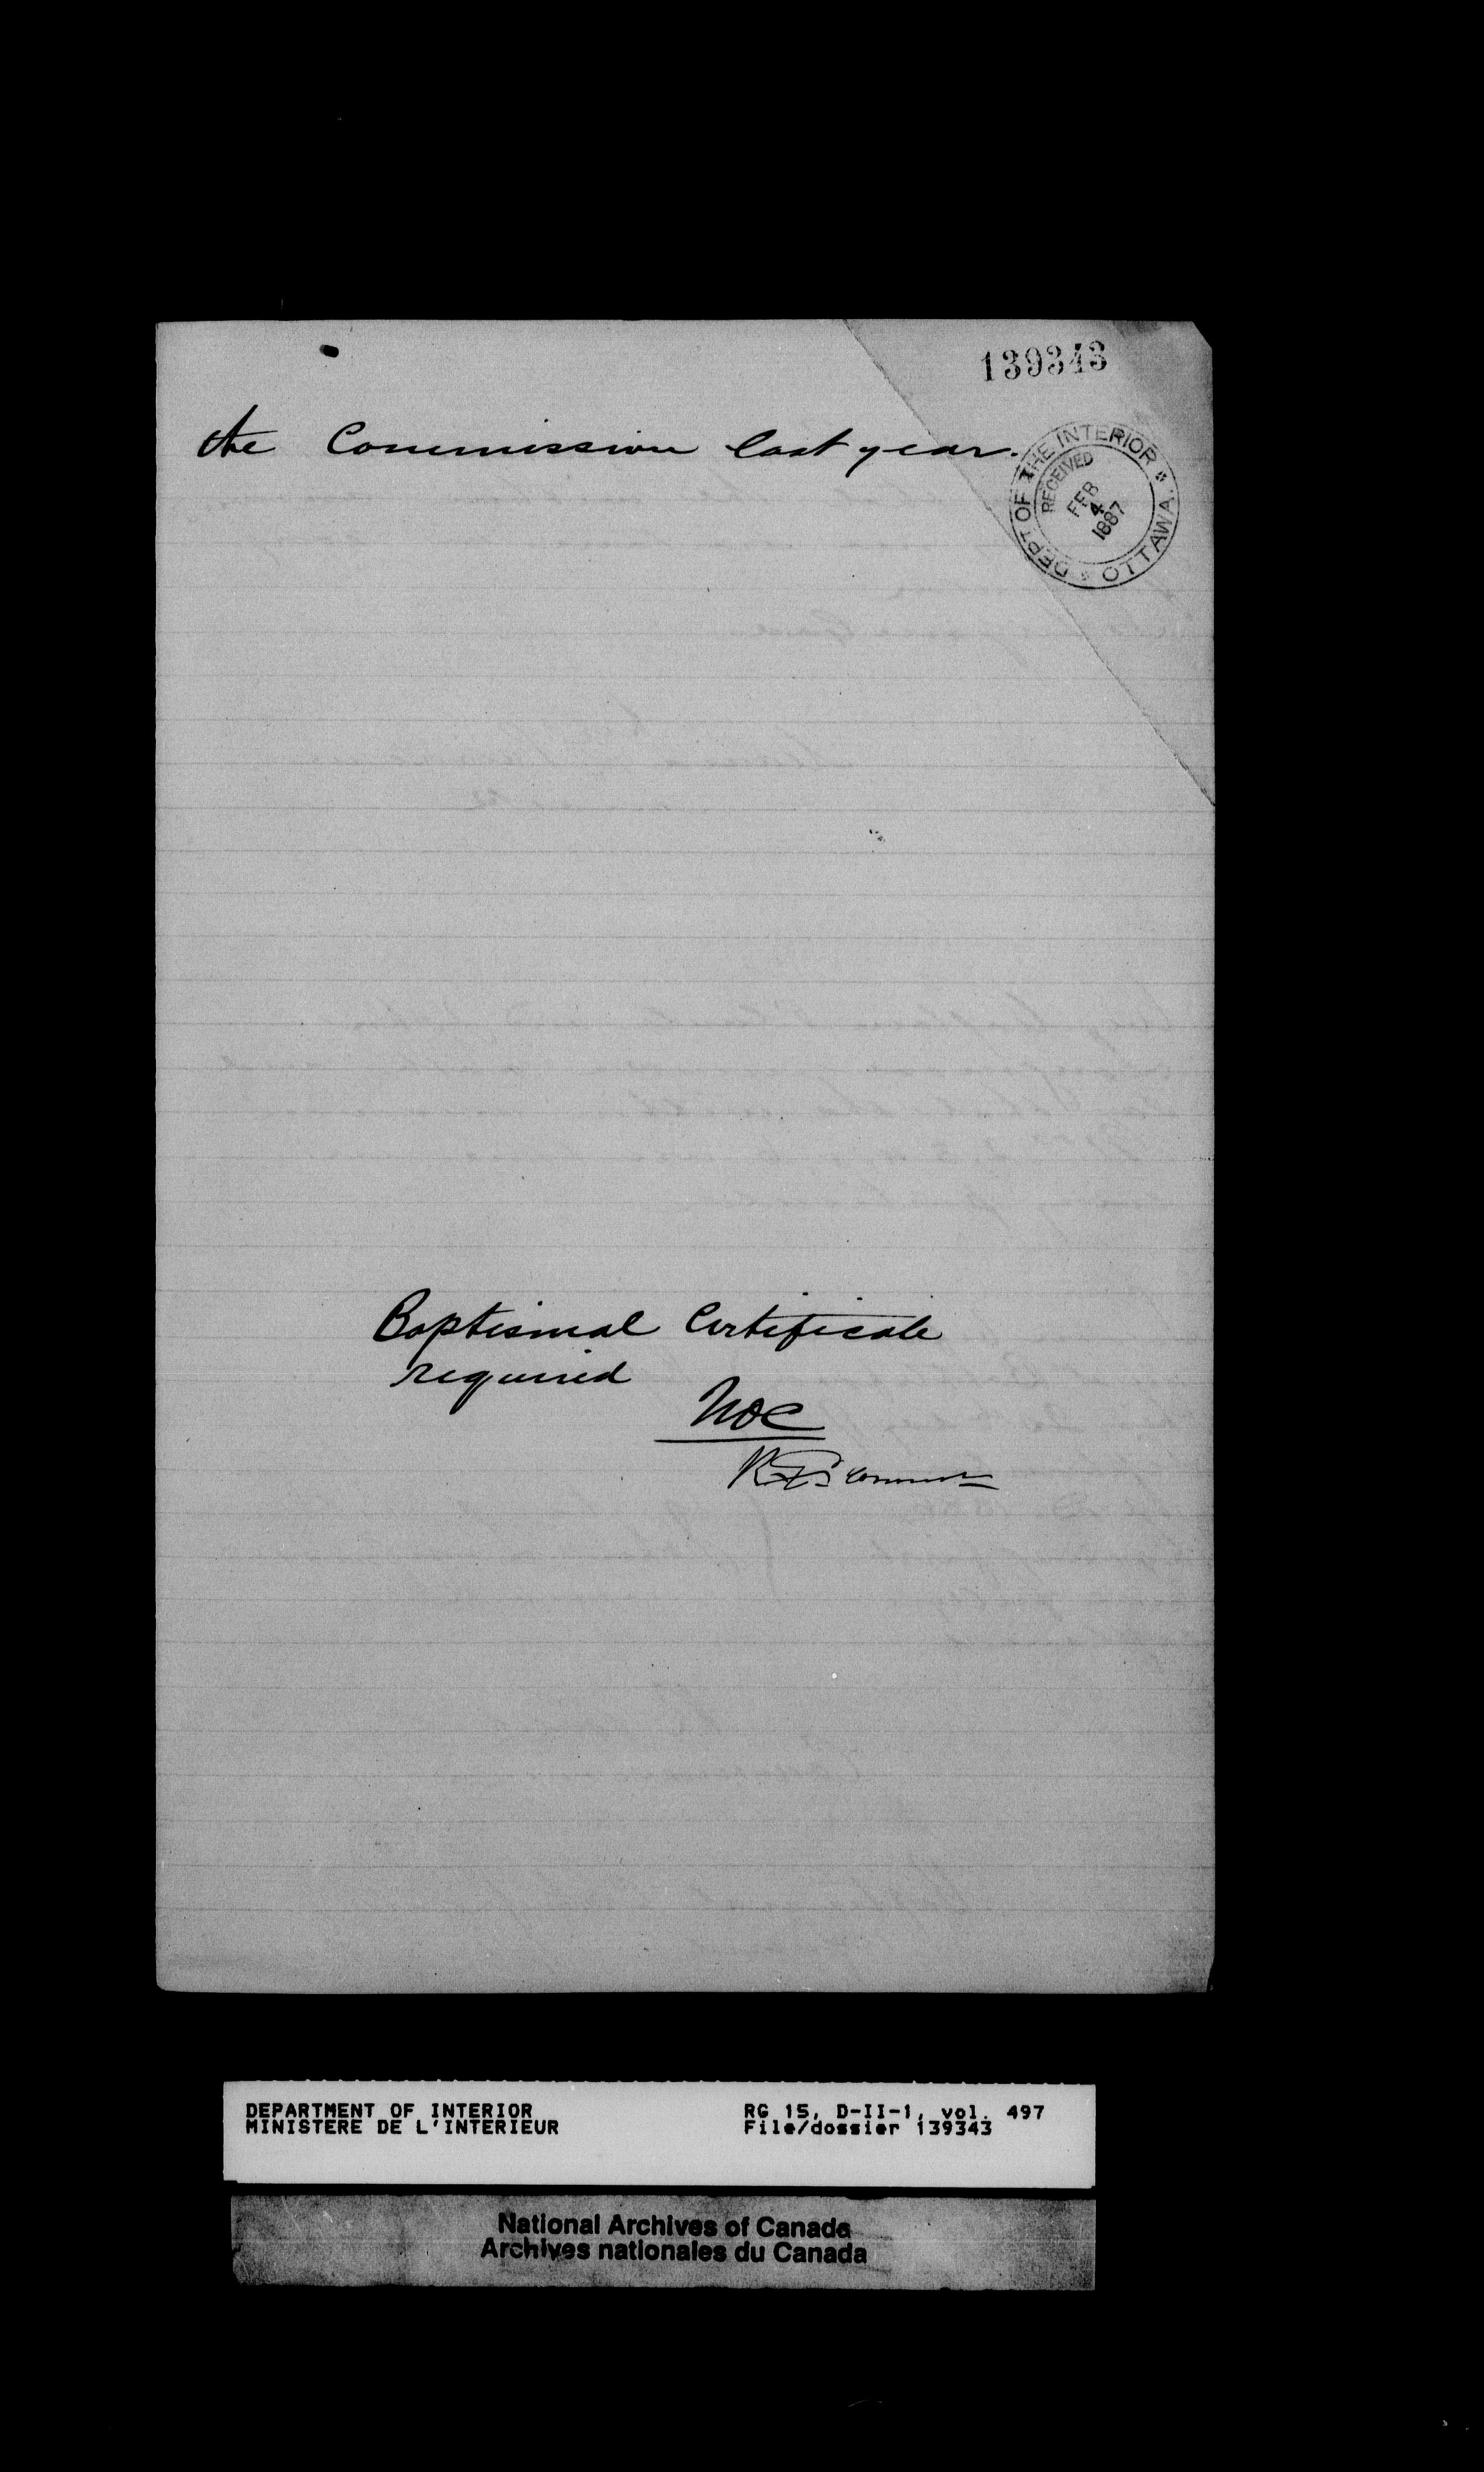 139343
the Commission last year.
DEPT OF THE INTERIOR
OTTAWA
RECEIVED
FEB
4
1887
Baptismal Certificate
required
DEPARTMENT OF INTERIOR
MINISTERE DE L'INTERIEUR
RG 15, D-II-1, vol. 497
File/dossier 139343
National Archives of Canada
Archives nationales du Canada